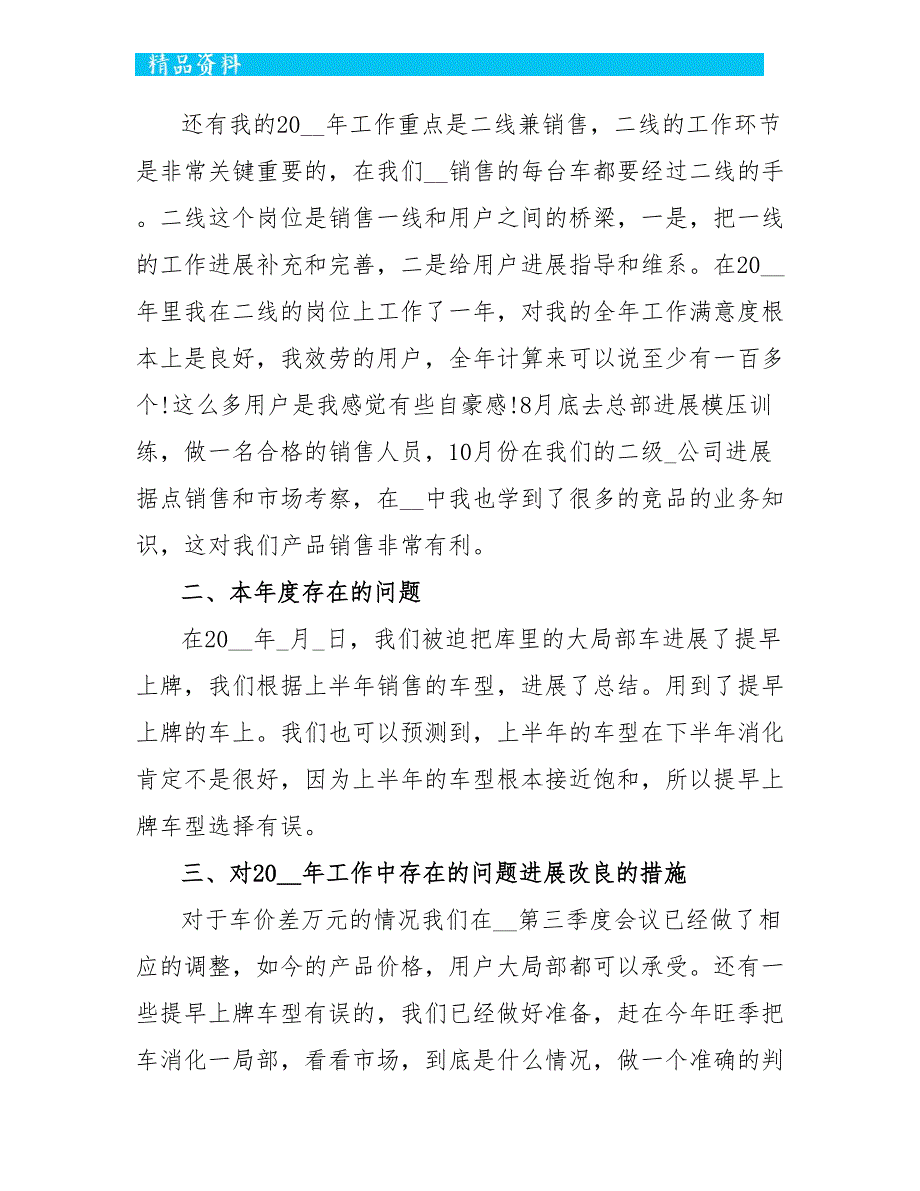 精品资料
还有我的20__年工作重点是二线兼销售，二线的工作环节
是非常关键重要的，在我们__销售的每台车都要经过二线的手
。二线这个岗位是销售一线和用户之间的桥梁，一是，把一线
的工作进展补充和完善，二是给用户进展指导和维系。在20__
年里我在二线的岗位上工作了一年，对我的全年工作满意度根
本上是良好，我效劳的用户，全年计算来可以说至少有一百多
个!这么多用户是我感觉有些自豪感!8月底去总部进展模压训
练，做一名合格的销售人员，10月份在我们的二级_公司进展
据点销售和市场考察，在__中我也学到了很多的竞品的业务知
识，这对我们产品销售非常有利。
二、本年度存在的问题
在20__年_月_日，我们被迫把库里的大局部车进展了提早
上牌，我们根据上半年销售的车型，进展了总结。用到了提早
上牌的车上。我们也可以预测到，上半年的车型在下半年消化
肯定不是很好，因为上半年的车型根本接近饱和，所以提早上
牌车型选择有误。
三、对20__年工作中存在的问题进展改良的措施
对于车价差万元的情况我们在__第三季度会议已经做了相
应的调整，如今的产品价格，用户大局部都可以承受。还有一
些提早上牌车型有误的，我们已经做好准备，赶在今年旺季把
车消化一局部，看看市场，到底是什么情况，做一个准确的判